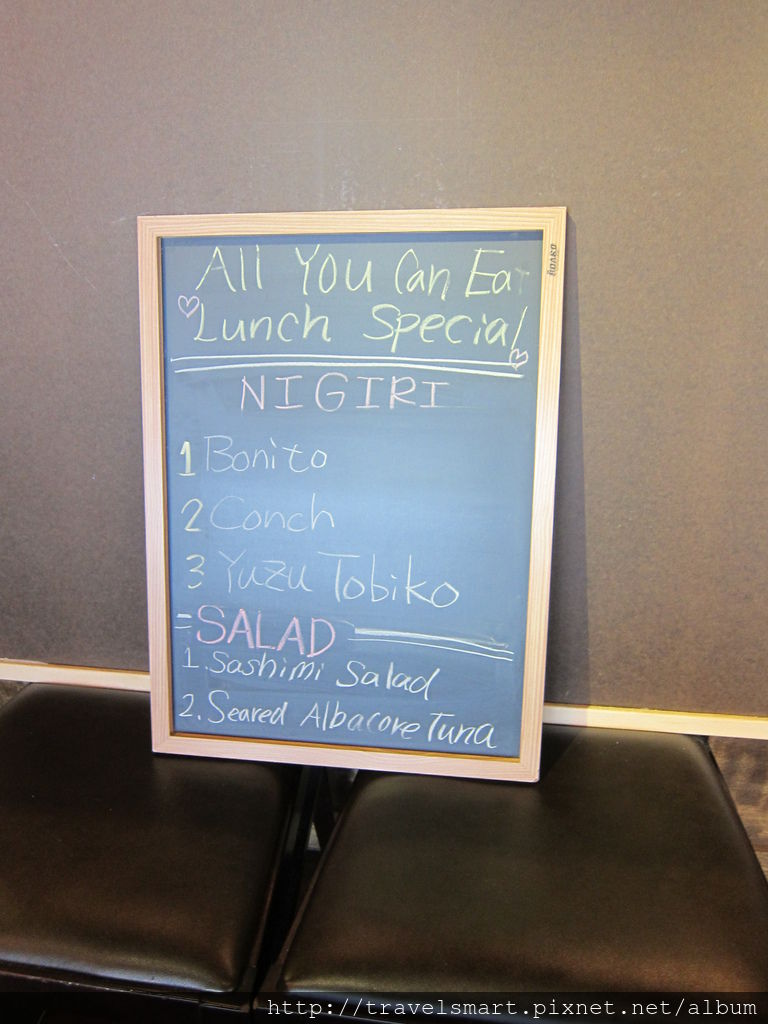 All You Can Eat
Lunch Special
NIGIRI
1 Bonito
2 Conch
3 Yuzu Tobiko
SALAD
1. Sashimi Salad
2. Seared Albacore Tuna
http://travelsmart.pixnet.net/album